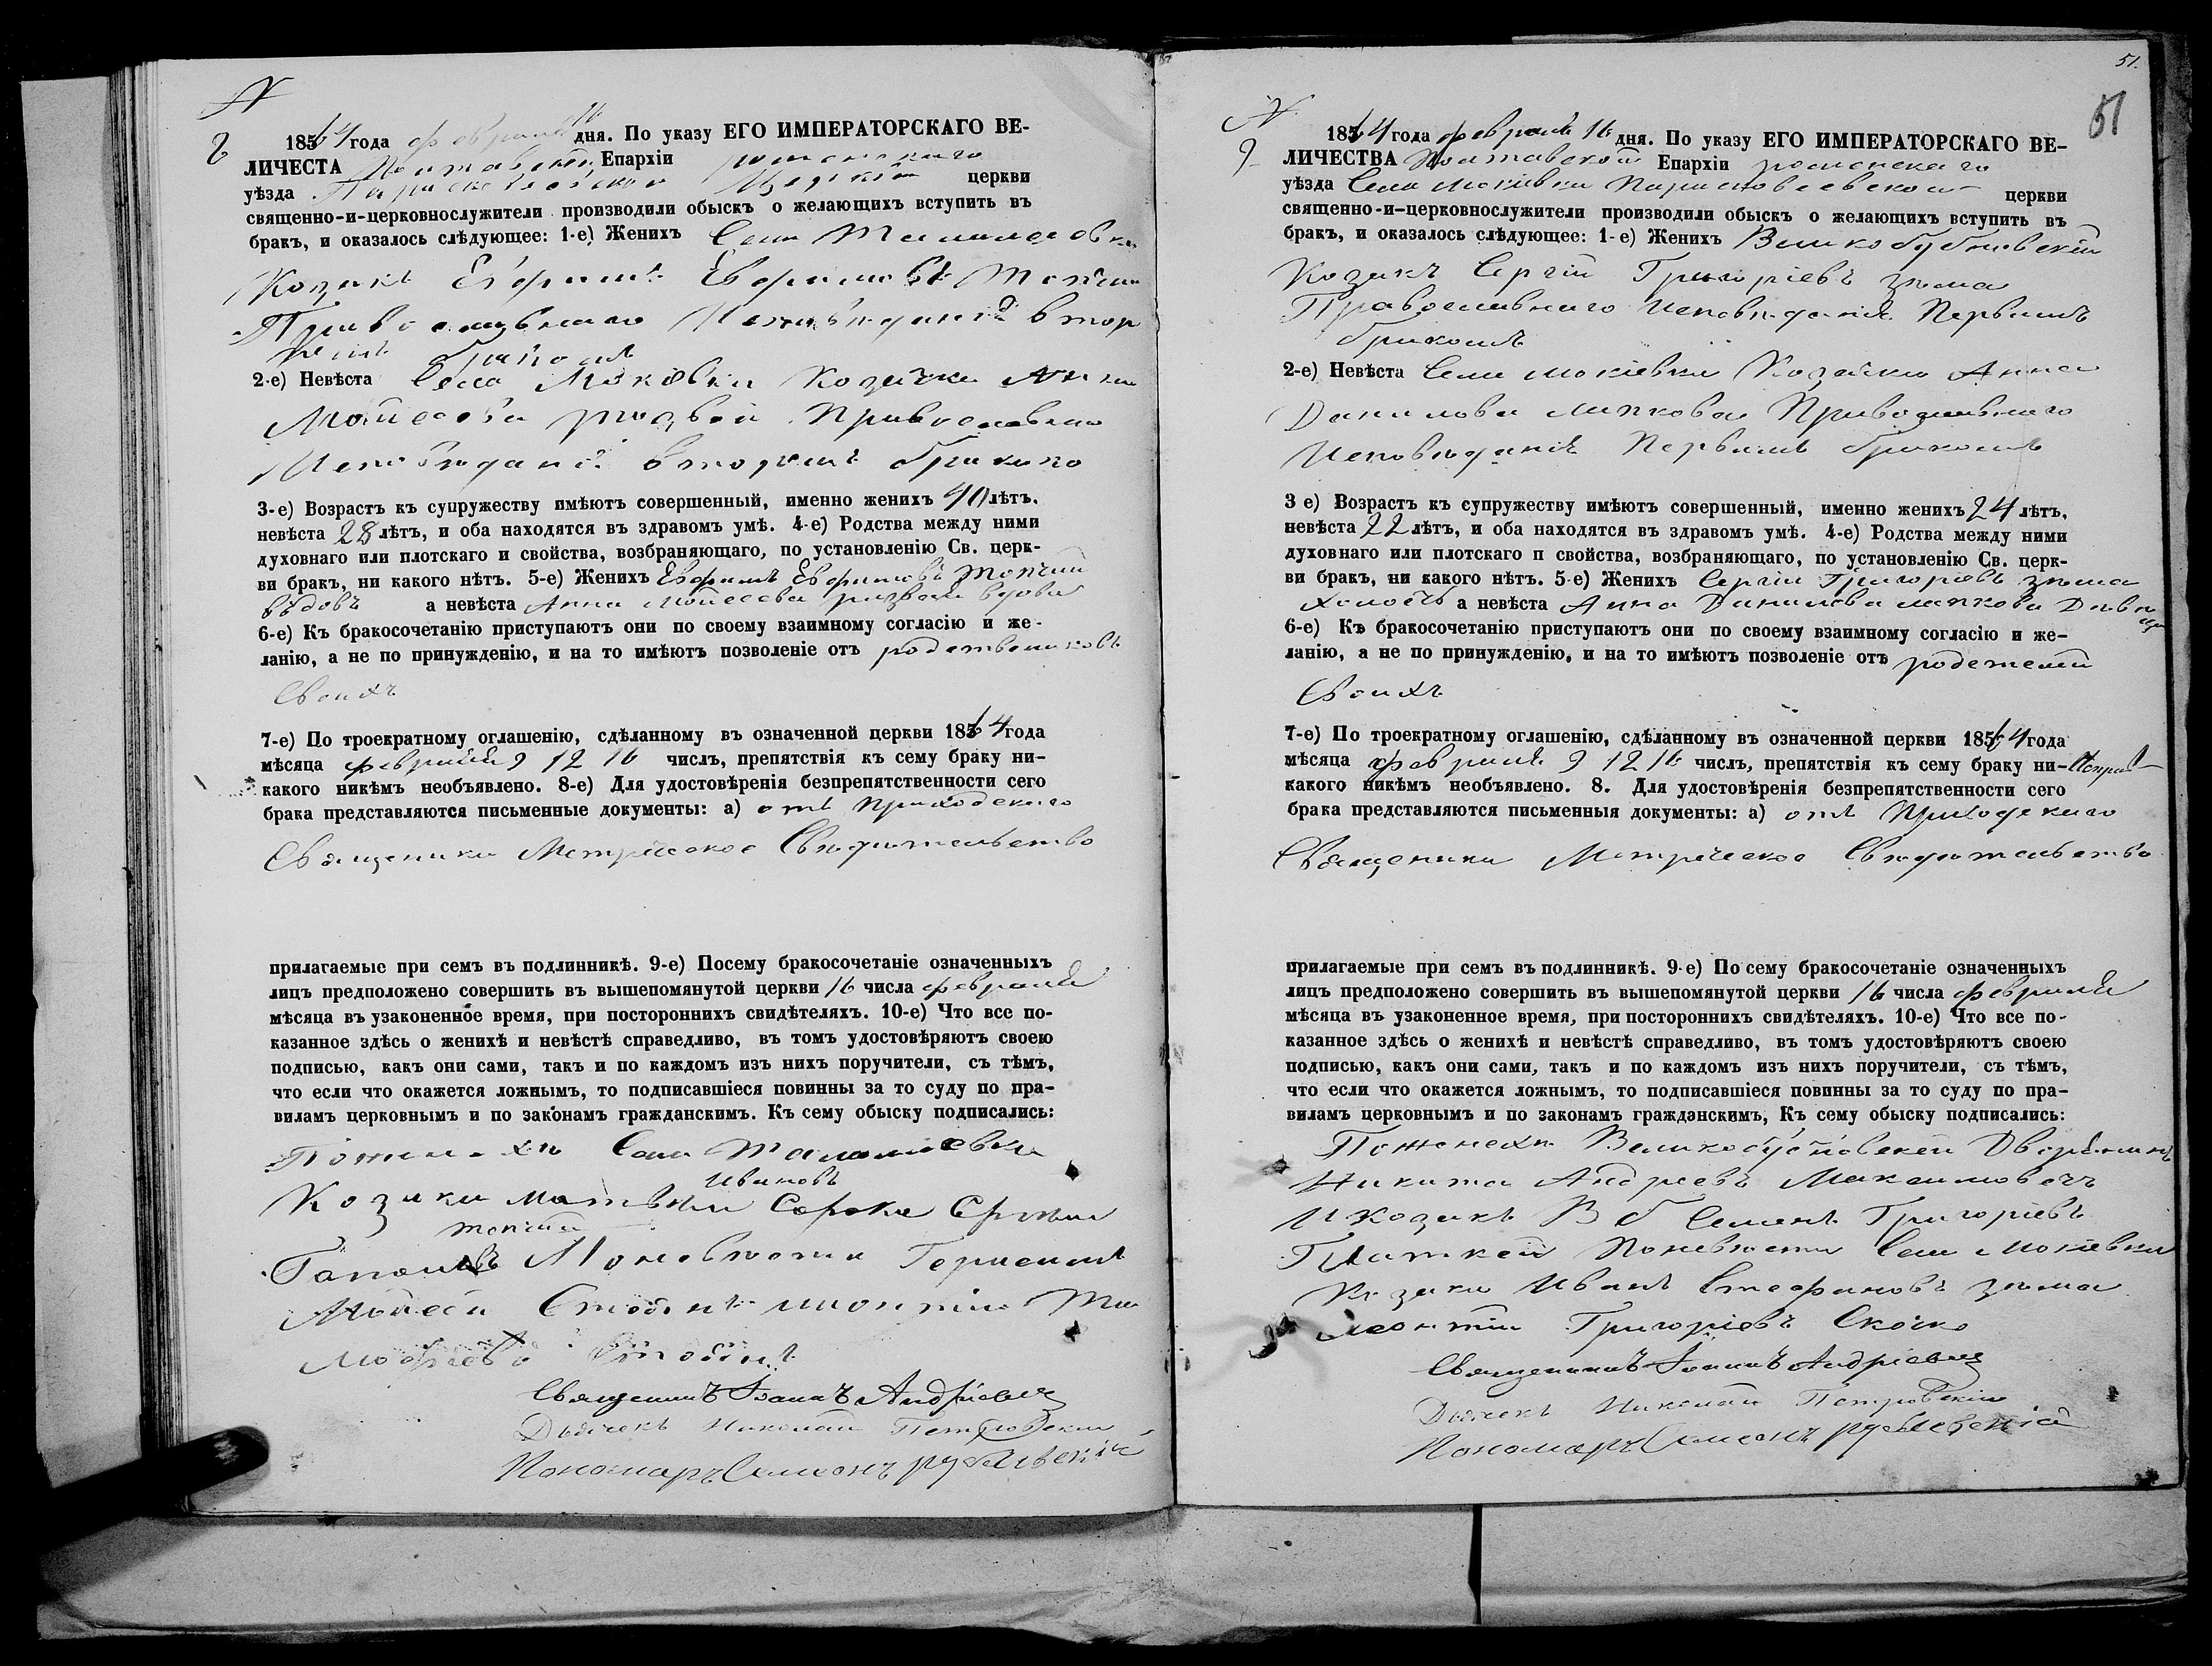 N
1864 года февраля 16 дня. По указу ЕГО ИМПЕРАТОРСКАГО ВЕ-
ЛИЧЕСТА Полтавской Епархіи роменскаго
уѣзда церкви
священно-и-церковнослужители производили обыскъ о желающихъ вступить въ
бракъ, и оказалось слѣдующее: 1-е) Женихъ Села
Козакъ Ефримъ Ефримовъ Топчій
Православнаго Исповѣданія втор
рымъ бракомъ
2-е) Невѣста Села Мокіевки Козачка Анна
Мойсеева Православнаго
Исповѣданія вторымъ бракомъ
3-е) Возрастъ къ супружеству имѣютъ совершенный, именно женихъ 40 лѣтъ.
невѣста 28 лѣтъ, и оба находятся въ здравомъ умѣ. 4-е) Родства между ними
духовнаго или плотскаго и свойства, возбраняющаго, по установленію Св. церк-
ви бракъ, ни какого нѣтъ. 5-е) Женихъ Ефримъ Ефримовъ Топчій
вдовъ а невѣста Анна Мойсеева вдова
6-е) Къ бракосочетанію приступаютъ они по своему взаимному согласію и же-
ланію, а не по принужденію, и на то имѣютъ позволеніе отъ родствениковъ
Своихъ
7-е) По троекратному оглашенію, сдѣланному въ означенной церкви 1864 года
мѣсяца февраля 9 12 16 числъ, препятствія къ сему браку ни-
какого никѣмъ необъявлено. 8-е) Для удостовѣренія безпрепятственности сего
брака представляются письменные документы: а) отъ Приходскаго
Священика Метрическое Свидѣтельство
прилагаемые при семъ въ подлинникѣ. 9-е) Посему бракосочетаніе означенныхъ
лицъ предположено совершить въ вышепомянутой церкви 16 числа февраля
мѣсяца въ узаконенное время, при постороннихъ свидѣтеляхъ. 10-е) Что все по-
казанное здѣсь о женихѣ и невѣстѣ справедливо, въ томъ удостовѣряютъ своею
подписью, какъ они сами, такъ и по каждомъ изъ нихъ поручители, съ тѣмъ,
что если что окажется ложнымъ, то подписавшіеся повинны за то суду по пра-
виламъ церковнымъ и по законамъ гражданскимъ. Къ сему обыску подписались:
Села
Ивановъ
Козаки Сорока
Топчій
Поневѣсти
Мойсей
Священикъ Іоаннъ Андріевъ
Дьячекъ Николай Петровскій
Пономарь Симеонъ
51.
51
N
9
1864 года февраля 16 дня. По указу ЕГО ИМПЕРАТОРСКАГО ВЕ-
ЛИЧЕСТВА Полтавской Епархіи роменскаго
уѣзда Села Мокіевки Параскевіевской церкви
священно-и-церковнослужители производили обыскъ о желающихъ вступить въ
бракъ, и оказалось слѣдующее: 1-е) Женихъ Великобубновскій
Козакъ Сергій Григоріевъ зюма
Православнаго Исповѣданія Первымъ
бракомъ
2-е) Невѣста Села Мокіевки Козачка Анна
Данилова Православнаго
Исповѣданія Первымъ бракомъ
3 е) Возрастъ къ супружеству имѣютъ совершенный, именно женихъ 24 лѣтъ,
невѣста 22 лѣтъ, и оба находятся въ здравомъ умѣ. 4-е) Родства между ними
духовнаго или плотскаго п свойства, возбраняющаго, по установленію Св. церк-
ви бракъ, ни какого нѣтъ. 5-е) Женихъ Сергій Григоріевъ зюма
холостъ а невѣста Анна Данилова Дѣвица
6-е) Къ бракосочетанію приступаютъ они по своему взаимному согласію и же-
ланію, а не по принужденію, и на то имѣютъ позволеніе отъ родетелей
Своихъ
7-е) По троекратному оглашенію, сдѣланному въ означенной церкви 1864 года
мѣсяца февраля 9 12 16 числъ, препятствія къ сему браку ни-
какого никѣмъ необъявлено. 8. Для удостовѣренія безпрепятственности сего
брака представляются письменныя документы: а) отъ Приходскаго
Священика Метрическое Свидѣтельство
прилагаемые при семъ въ подлинникѣ. 9-е) По сему бракосочетаніе означенныхъ
лицъ предположено совершить въ вышепомянутой церкви 16 числа февраля
мѣсяца въ узаконенное время, при постороннихъ свидѣтеляхъ. 10-е) Что все по-
казанное здѣсь о женихѣ и невѣстѣ справедливо, въ томъ удостовѣряютъ своею
подписью, какъ они сами, такъ и по каждомъ изъ нихъ поручители, съ тѣмъ,
что если что окажется ложнымъ, то подписавшіеся повинны за то суду по пра-
виламъ церковнымъ и по законамъ гражданскимъ, Къ сему обыску подписались:
Поженехѣ Великобубновскій Дворянинъ
Никита Андреевъ Максимовечъ
И козакъ В б Семенъ Григоріевъ
Поневѣсти Села Мокіевки
Козаки Иванъ Стефановъ зюма
Леонтій Григоріевъ Скочко
Священикъ Іоаннъ Андріевъ
Дьячекъ Николай Петровскій
Пономарь Симеонъ